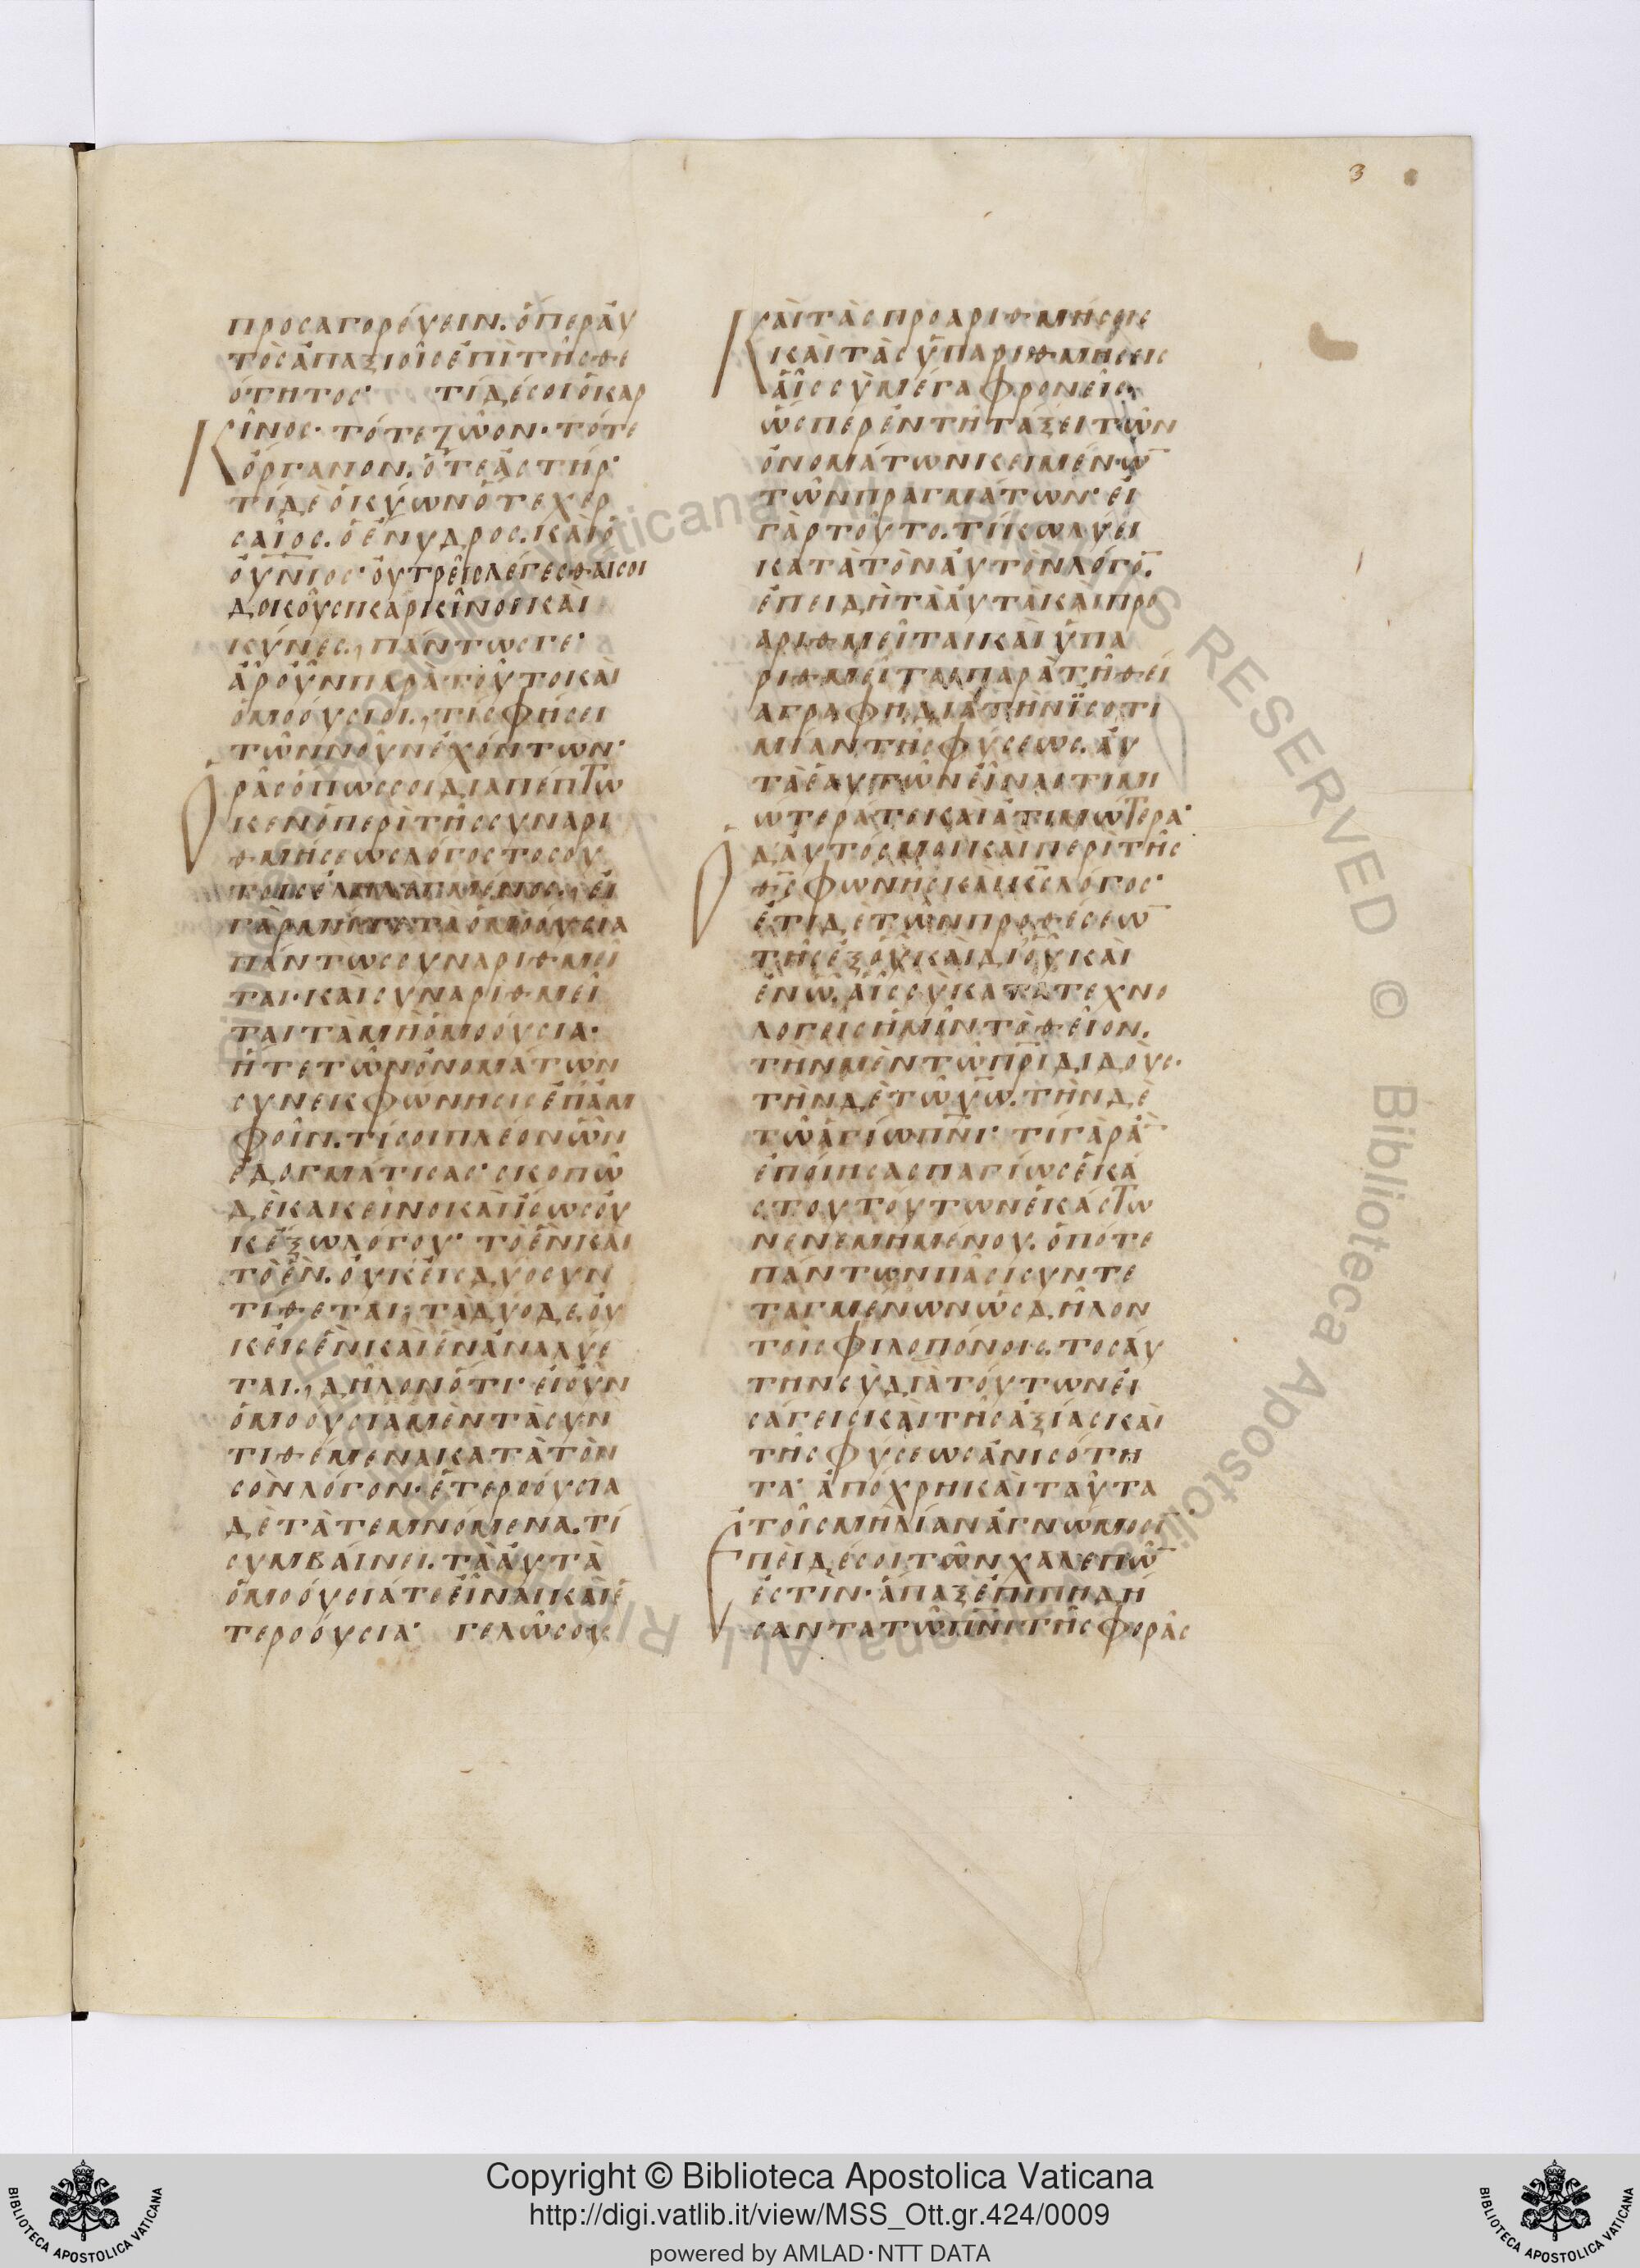 3
προσαγορέυειν. ὅπεραυ
τὸσἀπαξιοῖσἐπὶτῆσθε
ότητοσ· τίδέσοιὁκαρ
Κίνοσ· τότεζῶον· τότε
ὄργανον. ὅτεἀστήρ·
τίδεὁκύωνὅτεχερ
σαῖοσ. ὁἔνυδροσ. καὶὁ
οὐνιοσ· οὐτρεῖσλέγεσθαισοι
δοκοῦσικαρκῖνοικαὶ
κύνεσ, πάντωσγε·
ἆροὖνπαρὰτοῦτοκαὶ
ὁμοούσιοι, τίσφήσει
τῶννοῦνἐχόντων·
Ορᾶσὅπωσσοιδιαπέπτω
κενὁπερὶτῆσσυναρι
θμήσεωσλόγοστοσου
τοισἐληλεγμένοσ, εἰ
γὰρμὴτὰτὰὁμοούσια
πάντωσσυναριθμεῖ
ται· καὶσυναριθμεῖ
ταιτὰμὴὁμοούσια·
ἥτετῶνὀνομάτων
συνεκφώνησισἐπἀμ
φοῖν. τίσοιπλέονὧν
ἐδογμάτισασ· σκοπῶ
δὲκακεῖνοκαὶἴσωσοὐ
κέξωλόγου· τὸἓνκαὶ
τὸἕν. οὐκεἰσδύοσυν
τίθεται, τὰδύοδε. οὐ
κεἰσἓνκαὶἓνἀναλύε
ται, δῆλονὅτι· εἰοὖν
ὁμοουσιαμὲντὰσυν
τιθέμενακατὰτὸν
σὸνλόγον· ἑτεροούσια
δὲτὰτεμνόμενα. τί
συμβαίνει. τὰἀυτὰ
ὁμοούσιάτεεἶναικαὶἑ
τεροούσια· γελῶσου
Καὶτὰσπροαριθμήσεισ
καὶτὰσὑπαριθμήσεισ
αἷσσὺμέγαφρονεῖσ.
ὥσπερἐντῆτάξειτῶν
ὀνομάτωνκειμένω̄
τῶνπραγμάτων· εἰ
γὰρτοῦτο. τίκωλύει
κατὰτὸνἀυτὸνλόγο̄.
ἐπειδὴτὰἀυτὰκαὶπρο
αριθμεῖταικαὶὑπα
ριθμεῖταιπαρὰτῆθεί
αγραφῆδιὰτὴνἰσοτι
μίαντῆσφύσεωσ. ἀυ
τὰἑαυτῶνεἶναιτιμι
ώτεράτεκαὶἀτιμώτερα·
Ο δἀυτόσμοικαὶπερὶτῆσ
θ̅σ̅φωνῆσκαὶκ̅σ̅λόγοσ·
ἔτιδὲτῶνπροθέσεω̄
τῆσἐξοὗκαὶδιοὗκαὶ
ἐνὧ. αἷσσὺκατατεχνο
λογεῖσἡμῖντὸθεῖον.
τὴνμὲντῶπ̅ρ̅ιδιδοὺσ.
τὴνδὲτῶυ̅ω̅. τὴνδὲ
τῶἁγίωπ̅ν̅ι· τίγὰρἀ̄
ἐποίησασπαγίωσἑκά
στουτούτωνἑκάστω
νενεμημένου. ὁπότε
πάντωνπᾶσισυντε
ταγμένωνὡσδῆλον
τοῖσφιλοπόνοισ. τοσάυ
τηνσὺδιὰτούτωνἐι
σάγεισκαὶτῆσἀξίασκαὶ
τῆσφύσεωσἀνισότη
τα· ἀπόχρηκαὶταῦτα
τοῖσμὴλίανἀγνώμοσι
Επεὶδέσοιτῶνχαλεπῶ̄
ἐστὶν· ἅπαξἐπιπηδή
σαντατῶπ̅ν̅ιτῆσφορᾶσ
Copyright © Biblioteca Apostolica Vaticana
http://digi.vatlib.it/view/MSS_Ott.gr.424/0009
powered by AMLAD·NTT DATA
BIBLIOTECA APOSTOLICA VATICANA
BIBLIOTECA APOSTOLICA VATICANA